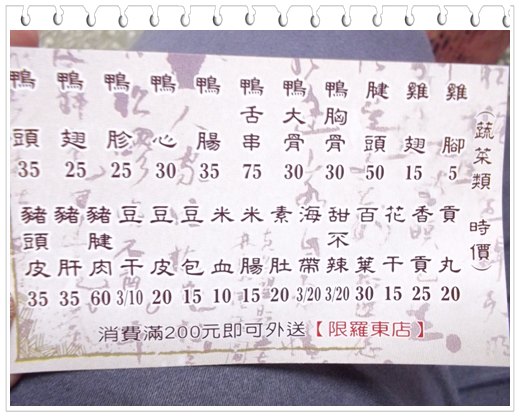 （蔬菜類 時價）
雞腳 5
雞翅 15
腱頭 50
鴨胸骨 30
鴨大骨 30
鴨舌串 75
鴨腸 35
鴨心 30
鴨胗 25
鴨翅 25
鴨頭 35
貢丸 20
香貢 25
花干 15
百葉 30
甜不辣 3/20
海帶 3/20
素肚 20
米腸 15
米血 10
豆包 15
豆皮 20
豆干 3/10
豬腱肉 60
豬肝 35
豬頭皮 35
消費滿200元即可外送【限羅東店】